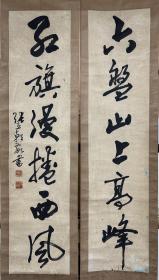 六盘山上高峰
红旗漫捲西风